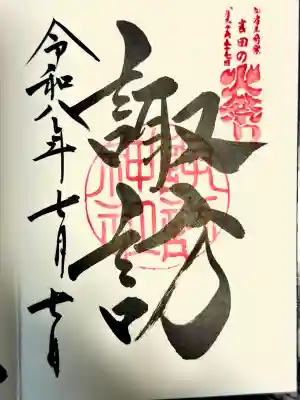 吉田の火祭り
諏訪
諏訪神社
令和八年七月七日